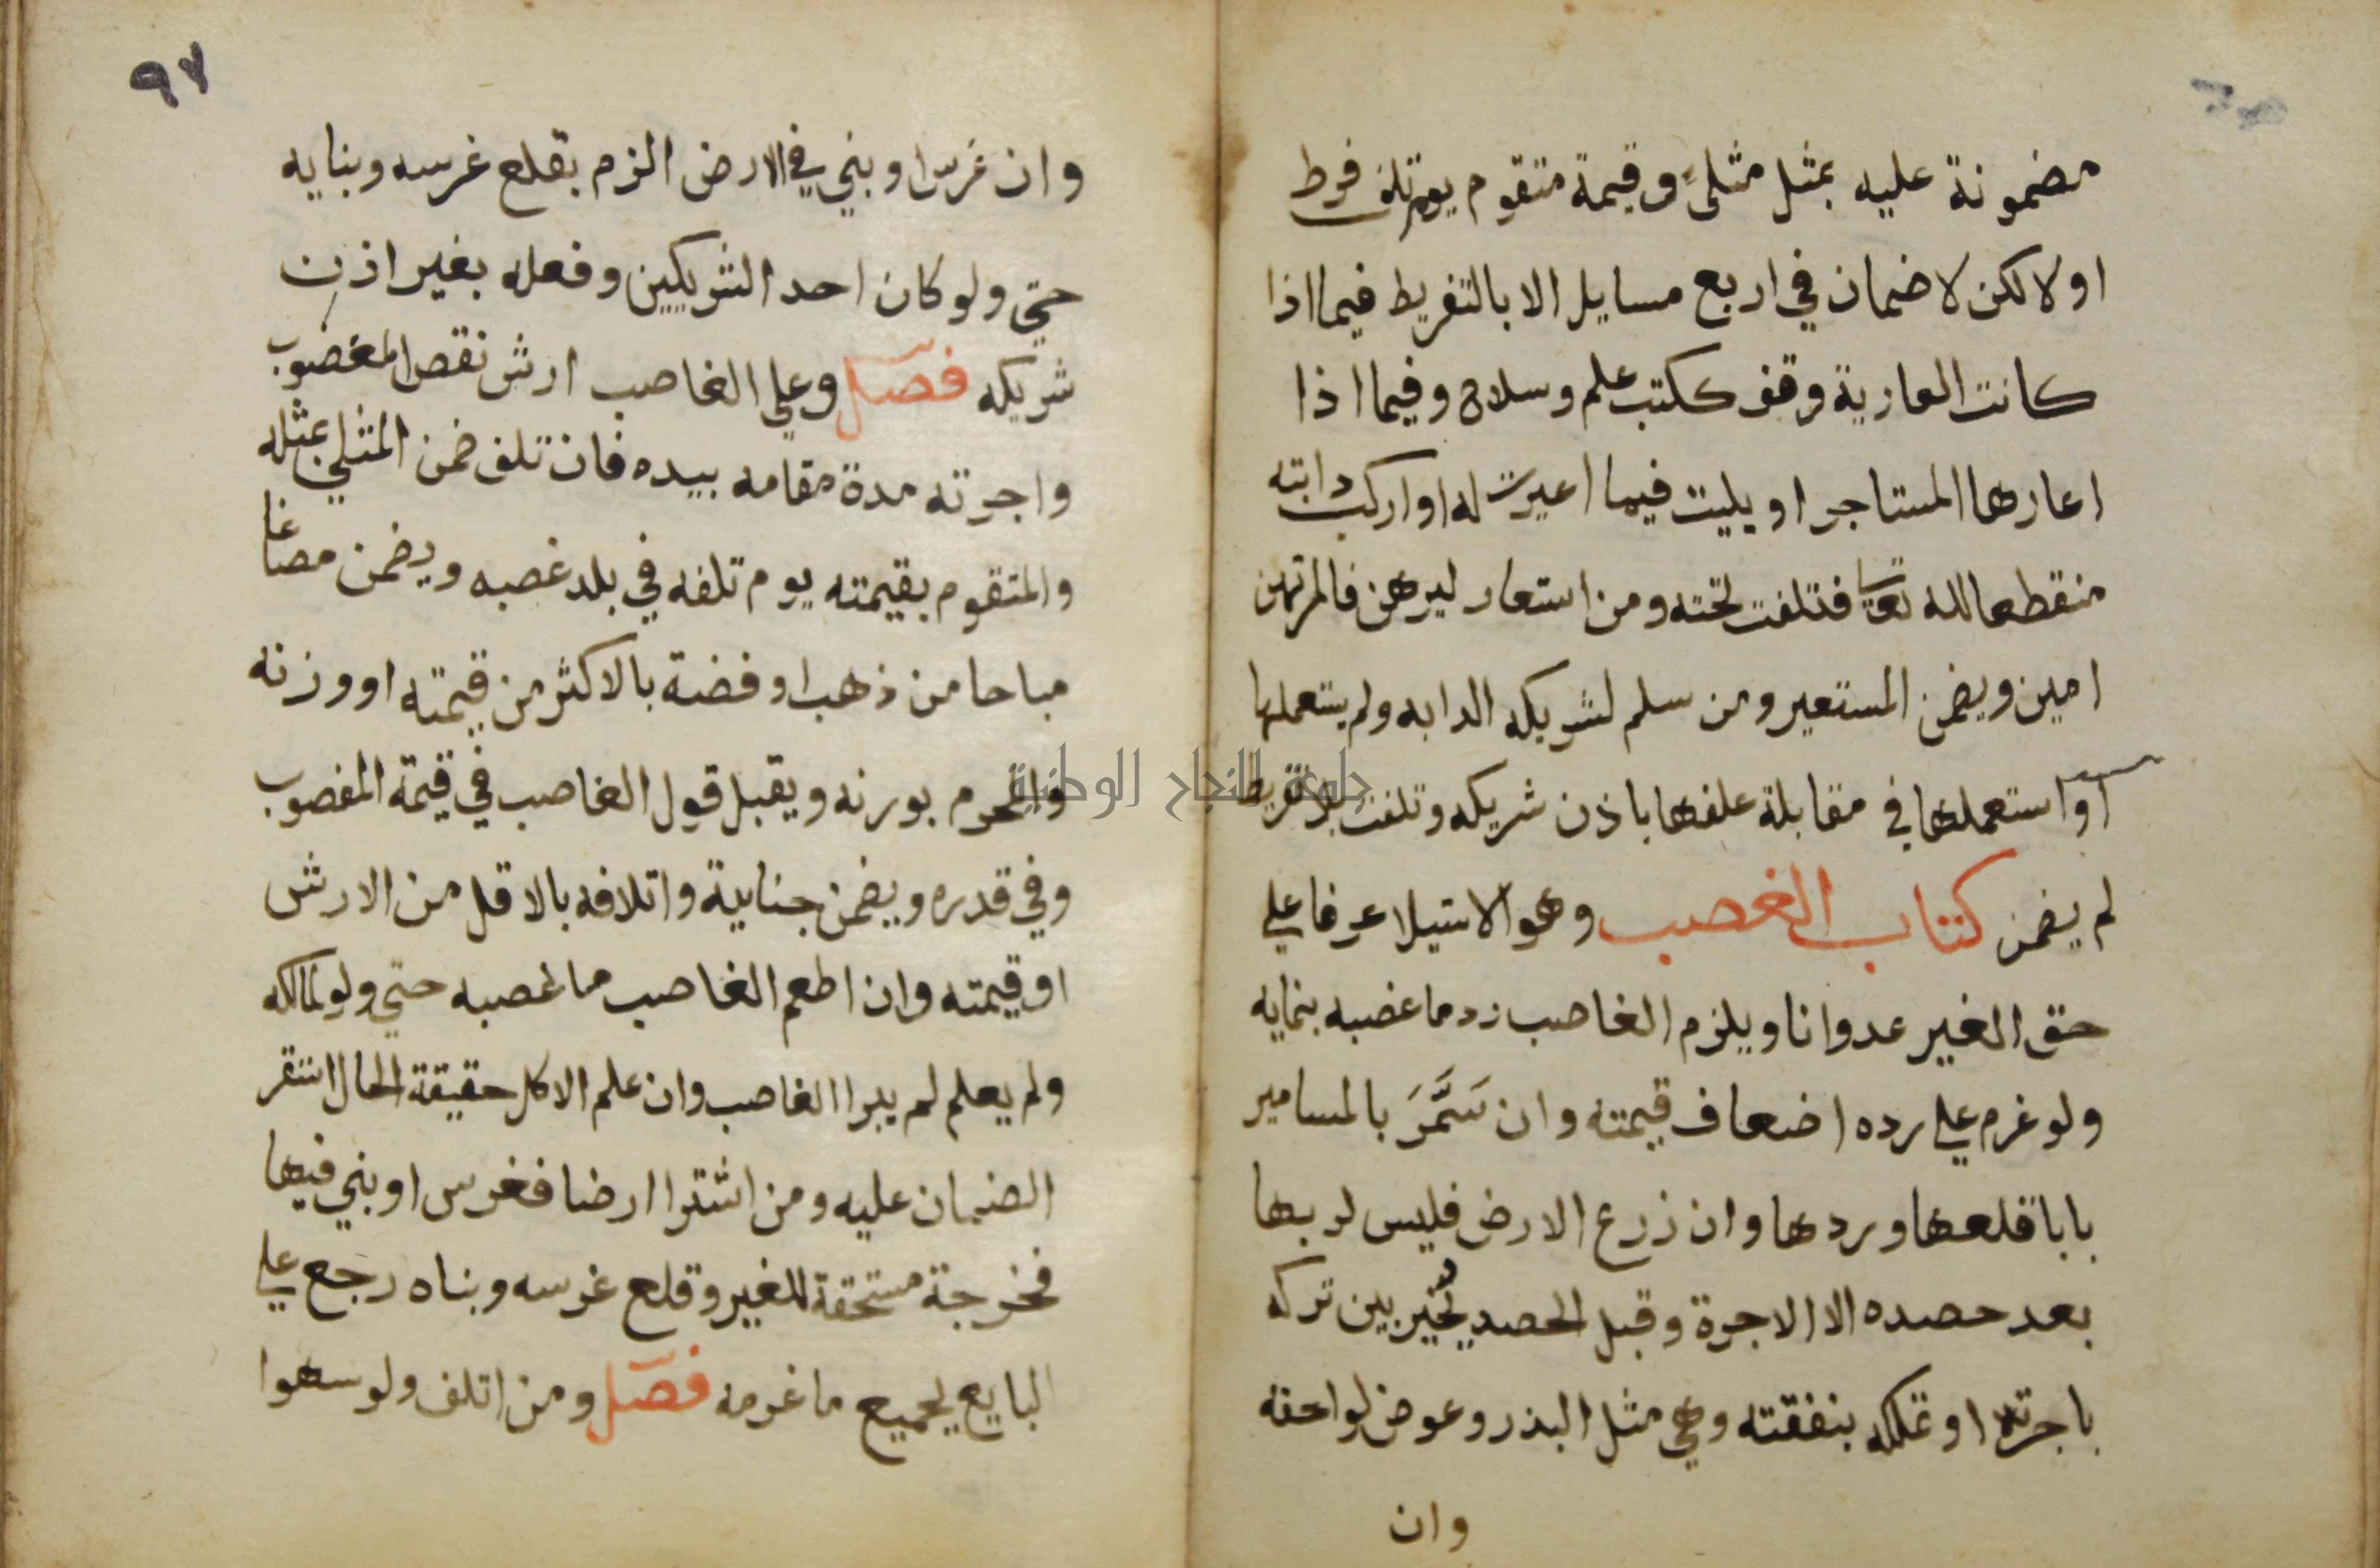 مضمونة عليه بمثل مثلي وقيمة متقوم يوم تلف فرط
اولا لكن لا ضمان في اربع مسايل الا بالتفريط فيما اذا
كانت العارية وقف ككتب علم وسلاح وفيما اذا
اعارها المستاجر او بليت فيما اعيرت له او اركب دابته
منقطعا لله تعالى فتلفت تحته ومن استعار ليرهن فالمرتهن
امين ويضمن المستعير ومن سلم لشريكه الدابه ولم يستعملها
او استعملها في مقابلة علفها باذن شريكه وتلفت بلا تفريط
لم يضمن كتاب الغصب وهو الاستيلا عرفا علي
حق الغير عدوانا ويلزم الغاصب رد ما غصبه بنمايه
ولو غرم علي رده اضعاف قيمته وان سَمَّرَ بالمسامير
بابا قلعها وردها وان زرع الارض فليس لربها
بعد حصده الا الاجرة وقبل الحصد يُخير بين تركه
باجرته او تملكه بنفقته وهي مثل البذر وعوض لواحقه
وان
٩٧
وان غرس او بني في الارض الزم بقلع غرسه وبنايه
حتي ولو كان احد الشريكين وفعله بغير اذن
شريكه فصل وعلي الغاصب ارش نقص المغصوب
واجرته مدة مقامه بيده فان تلف ضمن المثلي بمثله
والمتقوم بقيمته يوم تلفه في بلد غصبه ويضمن مصاغا
مباحا من ذهب او فضة بالاكثر من قيمته او وزنه
والمحرم بوزنه ويقبل قول الغاصب في قيمة المغصوب
وفي قدره ويضمن جناية واتلافه بالاقل من الارش
او قيمته وان اطعم الغاصب ما غصبه حتي ولو لمالكه
ولم يعلم لم يبرا الغاصب وان علم الاكل حقيقة الحال استقر
الضمان عليه ومن اشترا ارضا فغرس او بني فيها
فخرجة مستحقة للغير وقلع غرسه وبناه رجع علي
البايع بجميع ما غرمه فصل ومن اتلف ولو سهوا
جامعة النجاح الوطنية